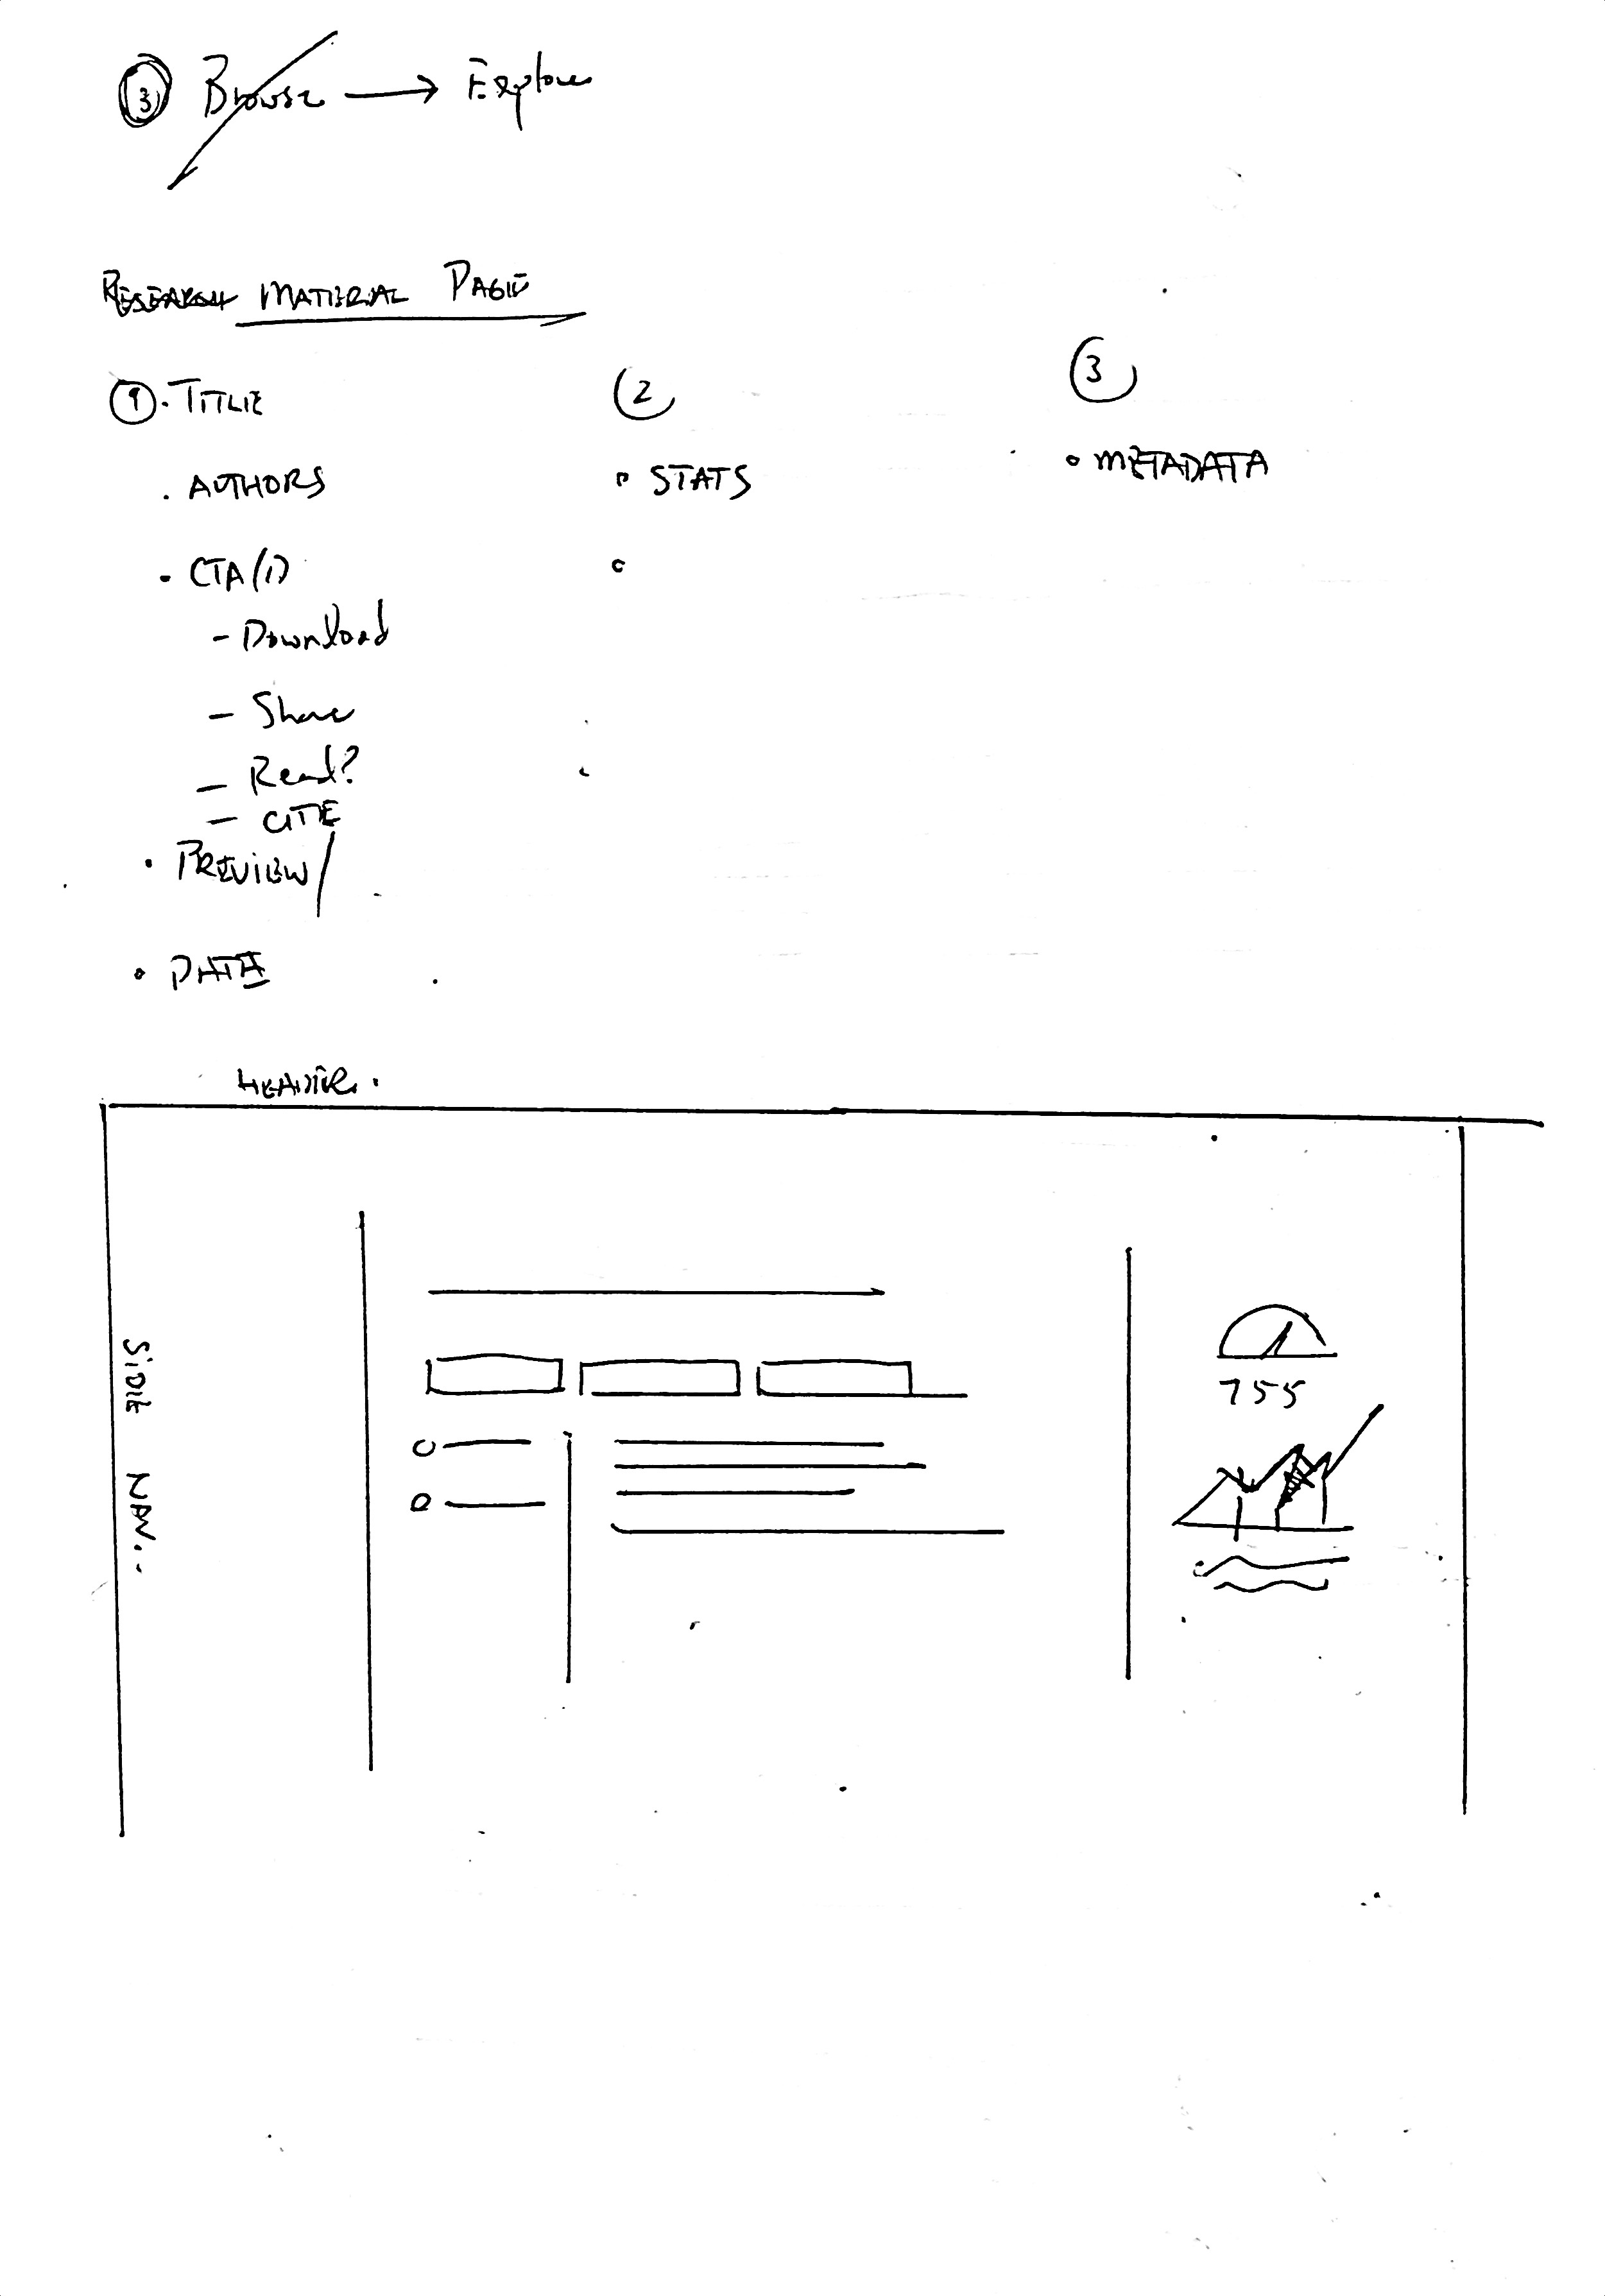 ③ Browse → Explore
RESEARCH MATERIAL PAGE
① • TITLE
• AUTHORS
• CTA (1)
- Download
- Share
- Read?
- CITE
• PREVIEW /
• DATA
②
• STATS
•
③
• METADATA
HEADER.
SIDE NAV.
755